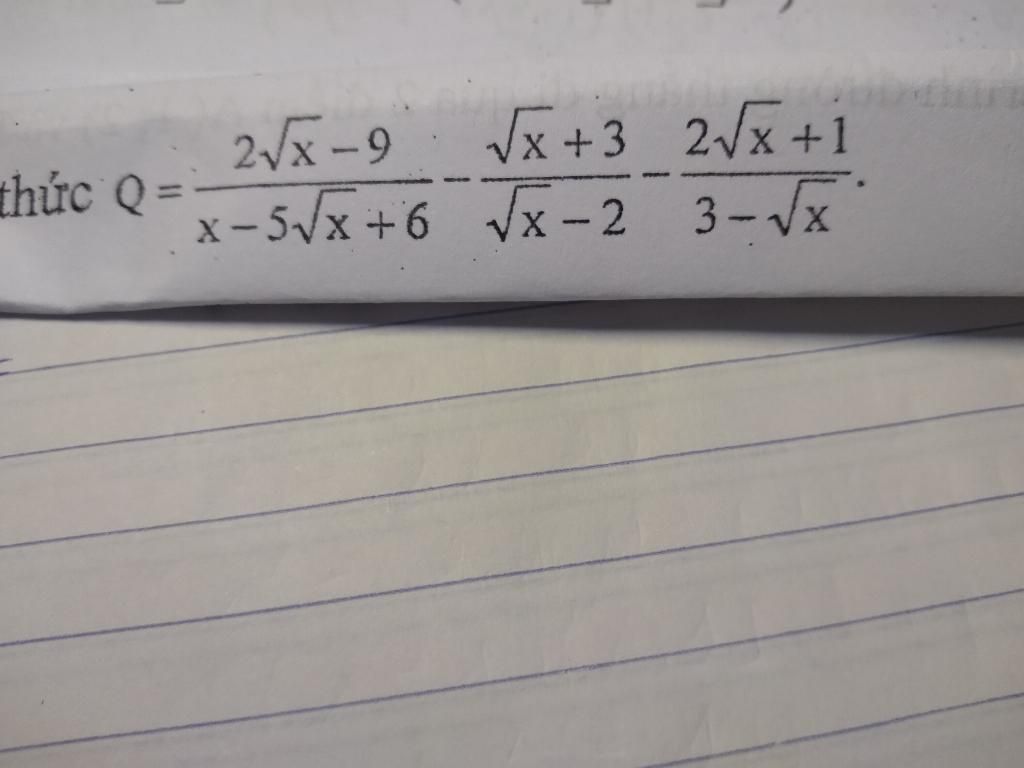 thức Q = \frac{2\sqrt{x}-9}{x-5\sqrt{x}+6} - \frac{\sqrt{x}+3}{\sqrt{x}-2} - \frac{2\sqrt{x}+1}{3-\sqrt{x}}.